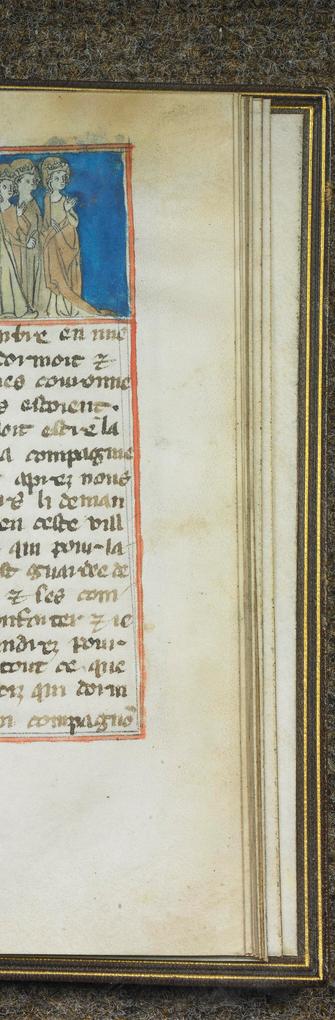 mbre en une
dormoit ⁊
nes couronne
s estoient.
oit estre la
a compagnie
apres nous
li deman
en ceste vill
qui pour la
st guardee de
⁊ ses com
nforter ⁊ ie
ndrez pour
tout ce que
qui dorm
compagnō